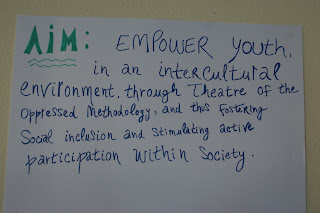 AiM: EMPOWER youth,
in an intercultural
environment, through Theatre of the
Oppressed Methodology, and thus fostering
Social inclusion and stimulating active
participation within Society.